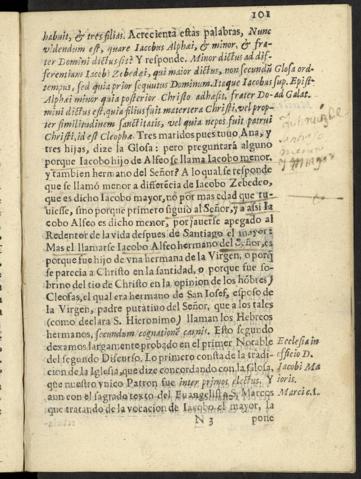 101
habuit, & tres filias. Acrecienta estas palabras, Nunc
videndum est, quare Iacobus Alphæi, & minor, & fra-
ter Domini dictus sit? Y responde. Minor dictus ad dif-
ferentiam Iacobi Zebedæi, qui maior dictus, non secundũ
tempus, sed quia prior sequutus Dominum. Itaque Iacobus
Alphæi minor quia posterior Christo adhæsit, frater Do-
mini dictus est, quia filius fuit materteræ Christi, vel prop-
ter similitudinem sanctitatis, vel quia nepos fuit patrui
Christi, id est Cleophæ. Tres maridos puestuuo Ana, y
tres hijas, dize la Glosa: pero preguntarà alguno
porque Iacobo hijo de Alfeo se llama Iacobo menor,
y tambien hermano del Señor? A lo qual se responde
que se llamó menor a diferẽcia de Iacobo Zebedeo,
que es dicho Iacobo mayor, no por mas edad que tu-
uiesse, sino porque primero siguio al Señor, y a assi Ia
cobo Alfeo es dicho menor, por auerse apegado al
Redentor de la vida despues de Santiago el mayor:
Mas el llamarse Iacobo Alfeo hermano del Señor, es
porque fue hijo de vna hermana de la Virgen, o porq̃
se parecia a Christo en la santidad, o porque fue so-
brino del tio de Christo en la opinion de los hõbres,
Cleofas, el qual era hermano de San Iosef, esposo de
la Virgen, padre putatiuo del Señor, que a los tales
(como declara S. Hieronimo) llaman los Hebreos
hermanos, secundum cognationẽ carnis. Esto segundo
dexamos largamente probado en el primer Notable
del segundo Discurso. Lo primero consta de la tradi-
cion de la Iglesia, que dize concordando con la Glosa,
que nuestro vnico Patron fue inter primos electus. Y
aun con el sagrado texto del Euangelista S. Marcos
que tratando de la vocacion de Iacobo el mayor, la
N 3 pone
Glosa ord-
sup. Epist-
ad Galat.
y mayor
Ecclesia in
officio D.
Iacobi Ma
ioris.
Marci c. 1.